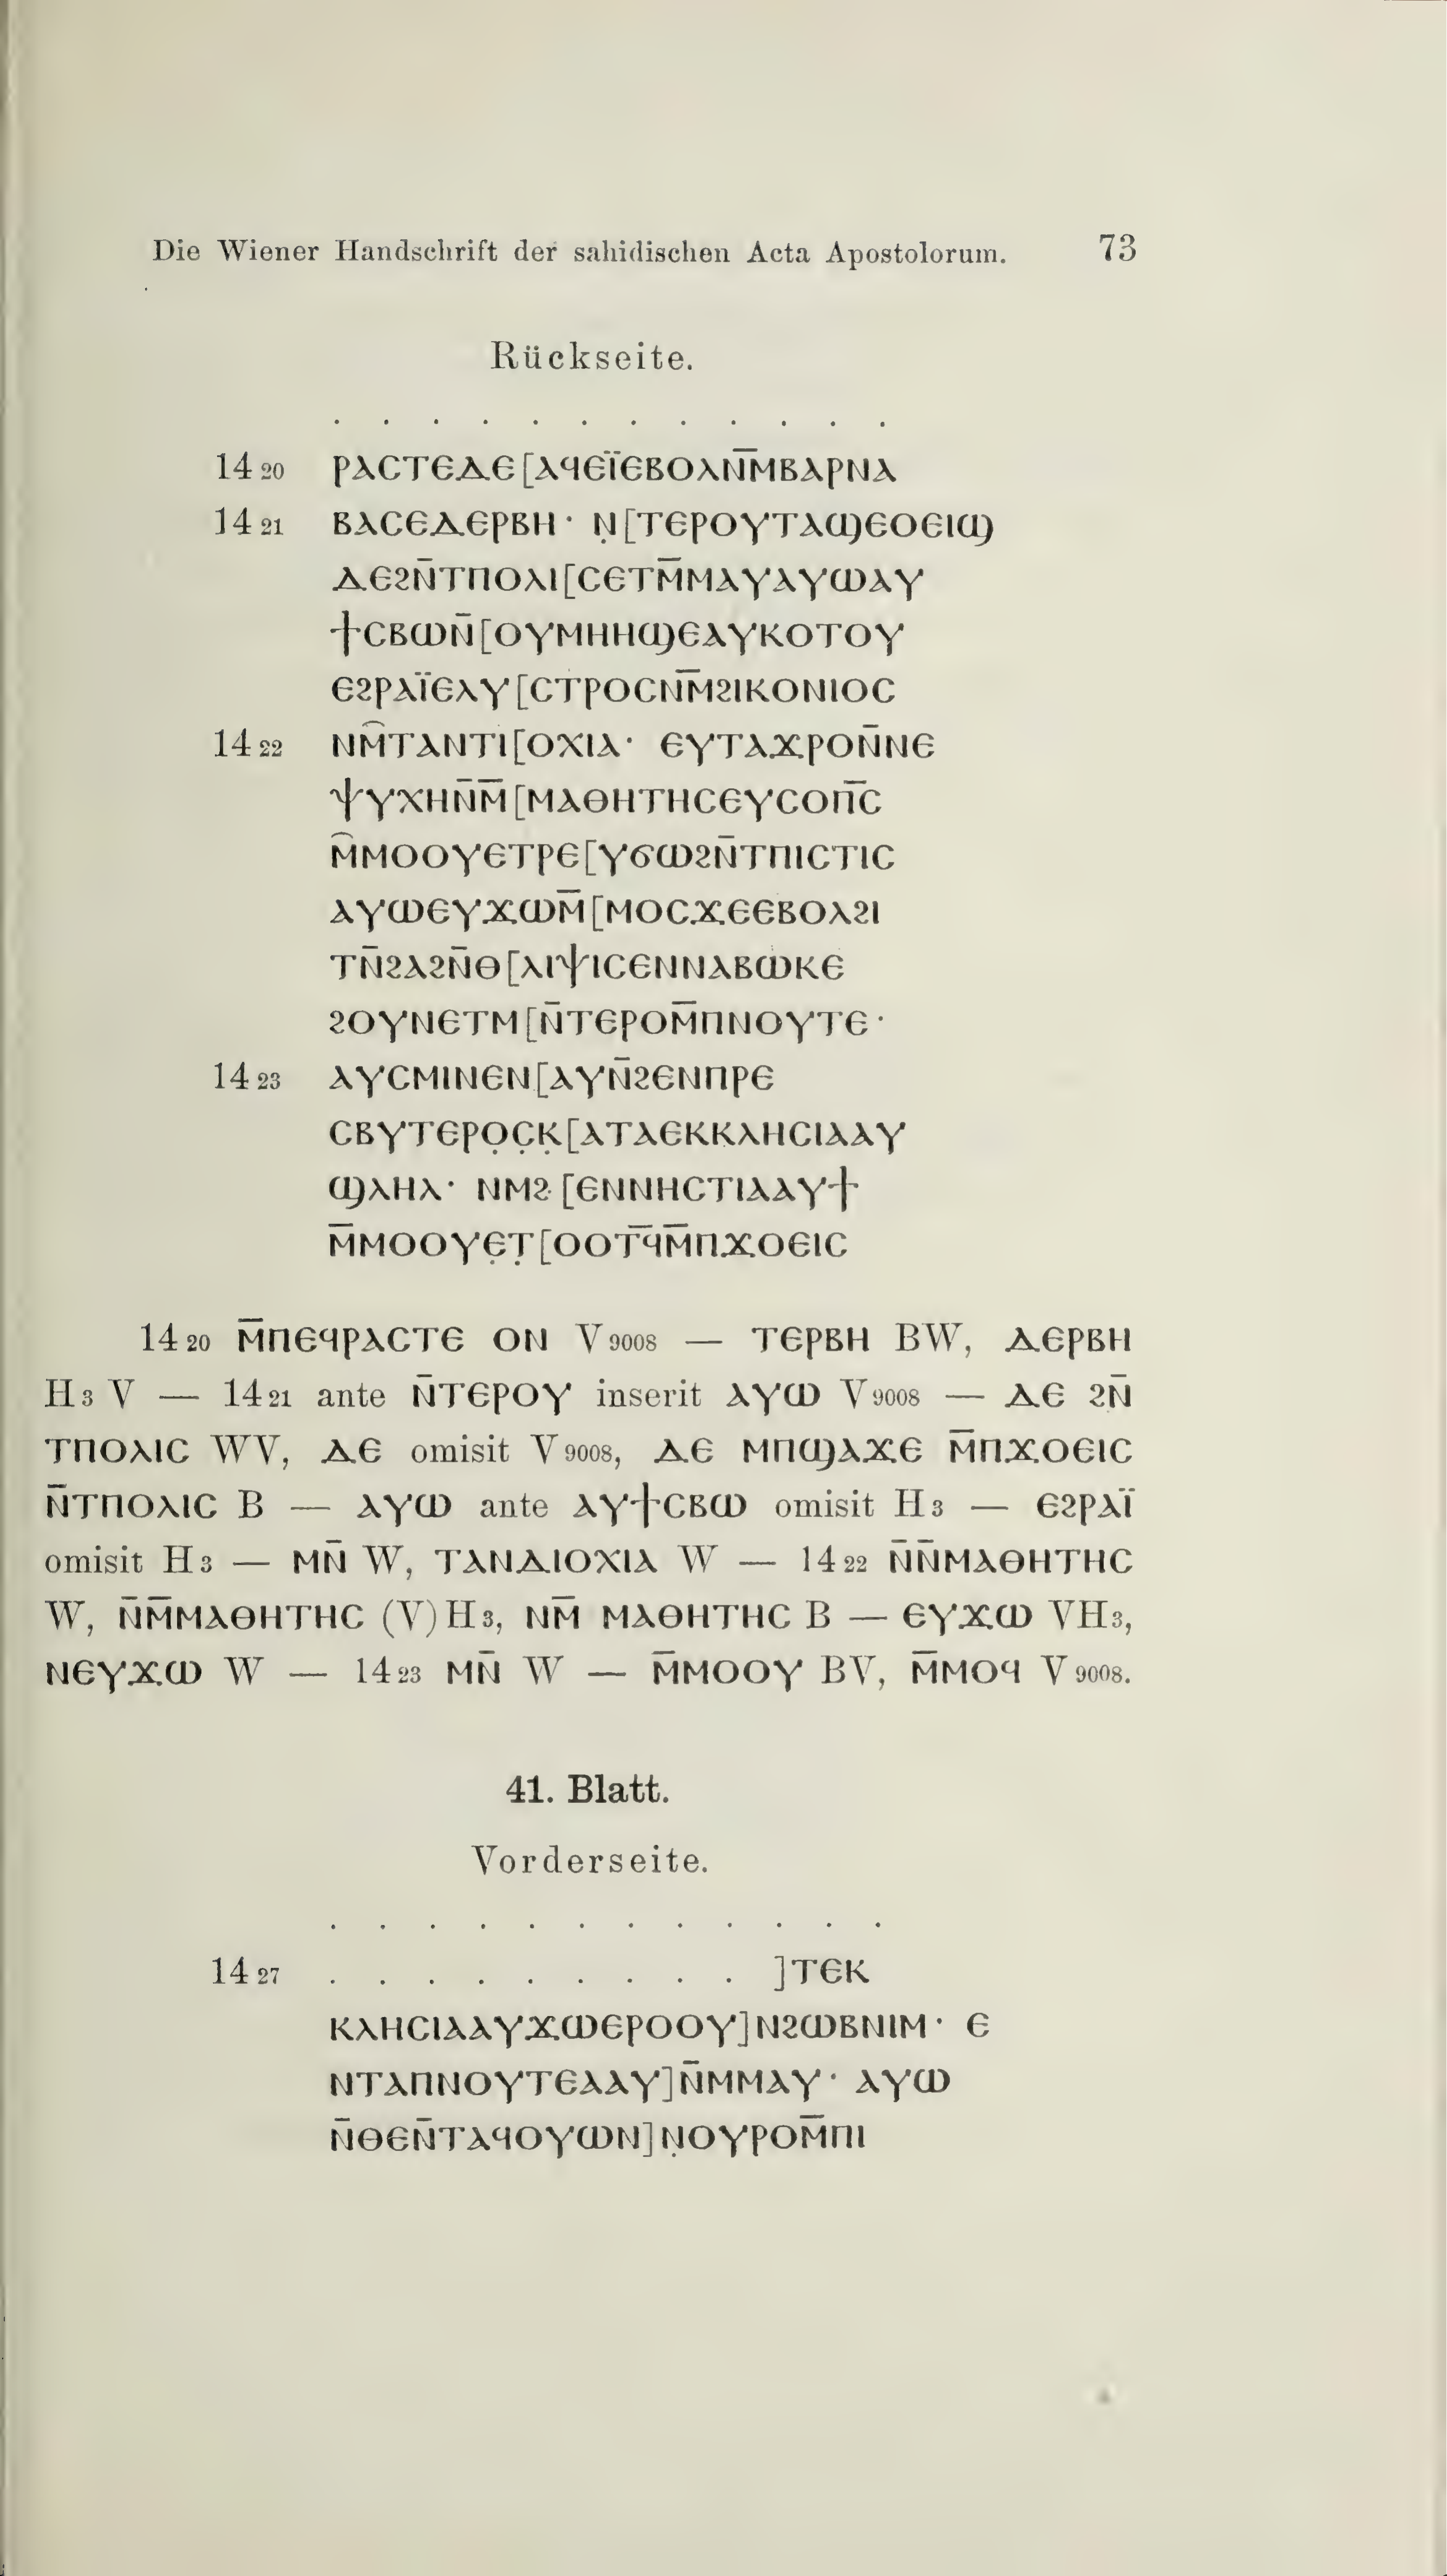 Die Wiener Handschrift der sahidischen Acta Apostolorum. 73
Rückseite.
. . . . . . . . . . . .
14 20 ⲣⲁⲥⲧⲉⲇⲉ[ⲁϥⲉⲓ̈ⲉⲃⲟⲗⲛ̅ⲙ̅ⲃⲁⲣⲛⲁ
14 21 ⲃⲁⲥⲉⲇⲉⲣⲃⲏ· ⲛ̣[ⲧⲉⲣⲟⲩⲧⲁϣⲉⲟⲉⲓϣ
ⲇⲉϩⲛ̅ⲧⲡⲟⲗⲓ[ⲥⲉⲧⲙ̅ⲙⲁⲩⲁⲩⲱⲁⲩ
ϯⲥⲃⲱⲛ̅[ⲟⲩⲙⲏⲏϣⲉⲁⲩⲕⲟⲧⲟⲩ
ⲉϩⲣⲁⲓ̈ⲉⲗⲩ[ⲥⲧⲣⲟⲥⲛⲙ̅ϩⲓⲕⲟⲛⲓⲟⲥ
14 22 ⲛⲙ̑ⲧⲁⲛⲧⲓ[ⲟⲭⲓⲁ· ⲉⲩⲧⲁϫⲣⲟⲛ̅ⲛⲉ
ⲯⲩⲭⲏⲛ̅ⲙ̅[ⲙⲁⲑⲏⲧⲏⲥⲉⲩⲥⲟⲡ̅ⲥ
ⲙ̑ⲙⲟⲟⲩⲉⲧⲣⲉ[ⲩϭⲱϩⲛ̅ⲧⲡⲓⲥⲧⲓⲥ
ⲁⲩⲱⲉⲩϫⲱⲙ̅[ⲙⲟⲥϫⲉⲉⲃⲟⲗϩⲓ
ⲧⲛ̅ϩⲁϩⲛ̅ⲑ[ⲗⲓⲯⲓⲥⲉⲛⲛⲁⲃⲱⲕⲉ
ϩⲟⲩⲛⲉⲧⲙ[ⲛ̅ⲧⲉⲣⲟⲙ̅ⲡⲛⲟⲩⲧⲉ·
14 23 ⲁⲩⲥⲙⲓⲛⲉⲛ[ⲁⲩⲛ̅ϩⲉⲛⲡⲣⲉ
ⲥⲃⲩⲧⲉⲣⲟ̣ⲥ̣ⲕ̣[ⲁⲧⲁⲉⲕⲕⲗⲏⲥⲓⲁⲁⲩ
ϣⲗⲏⲗ· ⲛⲙϩ[ⲉⲛⲛⲏⲥⲧⲓⲁⲁⲩϯ
ⲙ̅ⲙⲟⲟⲩⲉ̣ⲧ̣[ⲟⲟⲧ̅ϥⲙ̅ⲡϫⲟⲉⲓⲥ
14 20 ⲙ̅ⲡⲉϥⲣⲁⲥⲧⲉ ⲟⲛ V 9008 — ⲧⲉⲣⲃⲏ BW, ⲇⲉⲣⲃⲏ
H 3 V — 14 21 ante ⲛ̅ⲧⲉⲣⲟⲩ inserit ⲁⲩⲱ V 9008 — ⲇⲉ ϩⲛ̅
ⲧⲡⲟⲗⲓⲥ WV, ⲇⲉ omisit V 9008, ⲇⲉ ⲙⲡϣⲁϫⲉ ⲙ̅ⲡϫⲟⲉⲓⲥ
ⲛ̅ⲧⲡⲟⲗⲓⲥ B — ⲁⲩⲱ ante ⲁⲩϯⲥⲃⲱ omisit H 3 — ⲉϩⲣⲁⲓ̈
omisit H 3 — ⲙⲛ̅ W, ⲧⲁⲛⲇⲓⲟⲭⲓⲁ W — 14 22 ⲛ̅ⲛ̅ⲙⲁⲑⲏⲧⲏⲥ
W, ⲛ̅ⲙ̅ⲙⲁⲑⲏⲧⲏⲥ (V) H 3, ⲛⲙ̅ ⲙⲁⲑⲏⲧⲏⲥ B — ⲉⲩϫⲱ VH 3,
ⲛⲉⲩϫⲱ W — 14 23 ⲙⲛ̅ W — ⲙ̅ⲙⲟⲟⲩ BV, ⲙ̅ⲙⲟϥ V 9008.
41. Blatt.
Vorderseite.
. . . . . . . . . . . .
14 27 . . . . . . . . . ]ⲧⲉⲕ
ⲕⲗⲏⲥⲓⲁⲁⲩϫⲱⲉⲣⲟⲟⲩ]ⲛϩⲱⲃⲛⲓⲙ· ⲉ
ⲛⲧⲁⲡⲛⲟⲩⲧⲉⲁⲁⲩ]ⲛ̅ⲙⲙⲁⲩ· ⲁⲩⲱ
ⲛ̅ⲑⲉⲛ̅ⲧⲁϥⲟⲩⲱⲛ]ⲛ̣ⲟⲩⲣⲟⲙ̅ⲡⲓ